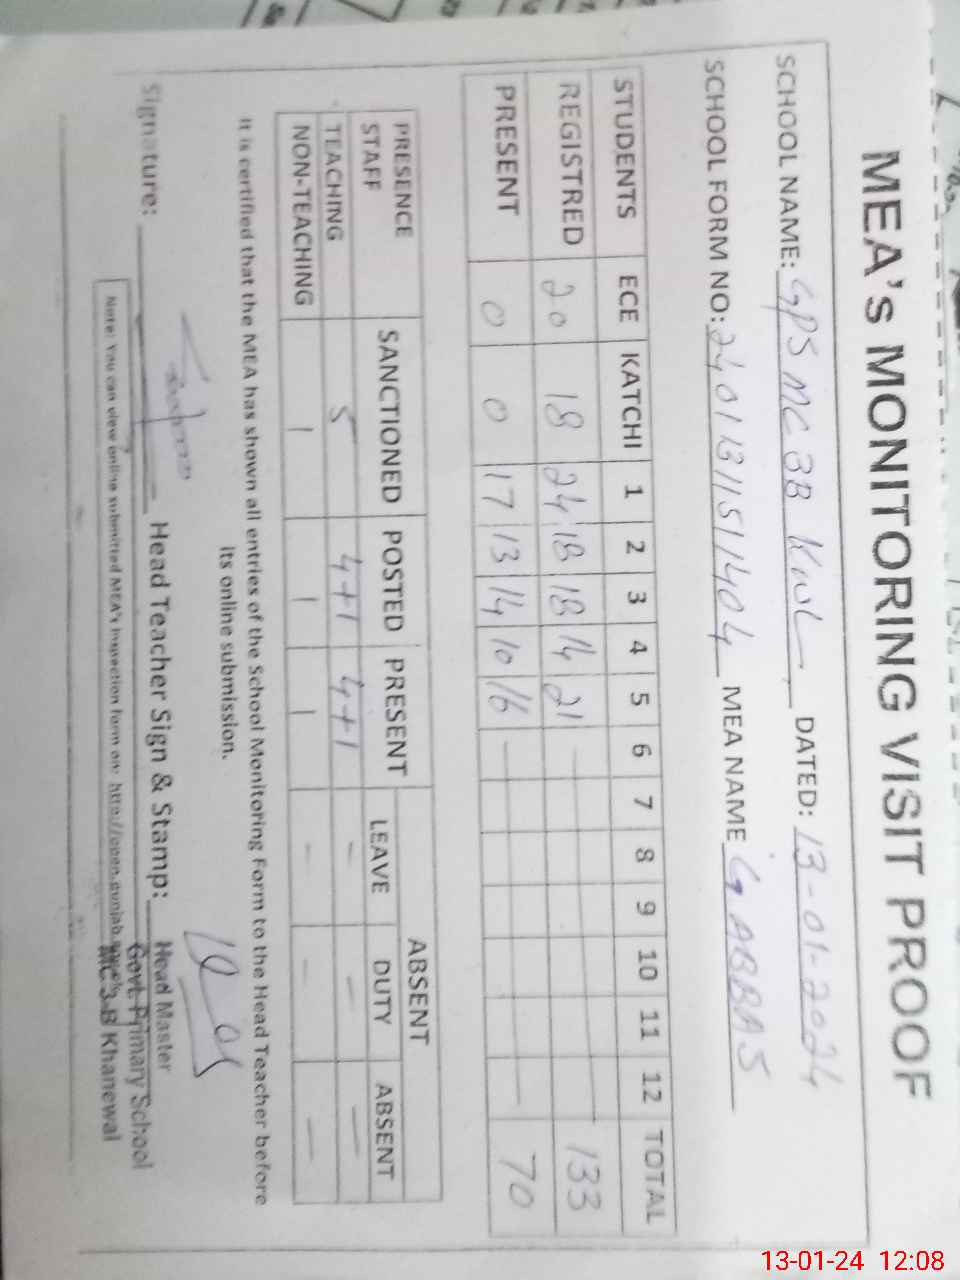 MEA's MONITORING VISIT PROOF
SCHOOL NAME: GPS MC 3B KWL DATED: 13-01-2024
SCHOOL FORM NO: 2401311511404 MEA NAME G ABBAS
STUDENTS ECE KATCHI 1 2 3 4 5 6 7 8 9 10 11 12 TOTAL
REGISTRED 20 18 24 18 18 14 21 — 133
PRESENT 0 0 17 13 14 10 16 — 70
PRESENCE STAFF SANCTIONED POSTED PRESENT ABSENT
LEAVE DUTY ABSENT
TEACHING 5 4+1 4+1 — — —
NON-TEACHING 1 1 1 — — —
It is certified that the MEA has shown all entries of the School Monitoring Form to the Head Teacher before
its online submission.
Signature: Head Teacher Sign & Stamp:
Head Master
Govt. Primary School
MC 3-B Khanewal
Note: You can view online submitted MEA's inspection form on: http://open.punjab
13-01-24 12:08